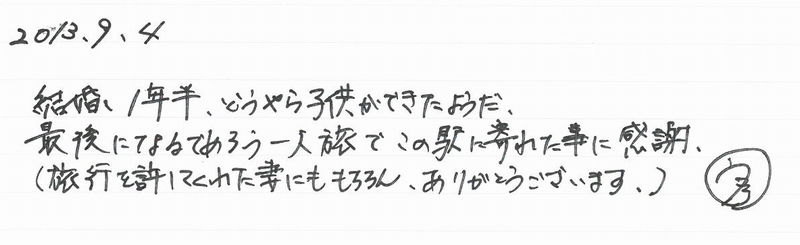 2013.9.4
結婚、1年半、どうやら子供ができたようだ、
最後になるであろう一人旅でこの駅に寄れた事に感謝、
(旅行を許してくれた妻にももちろん、ありがとうございます、)